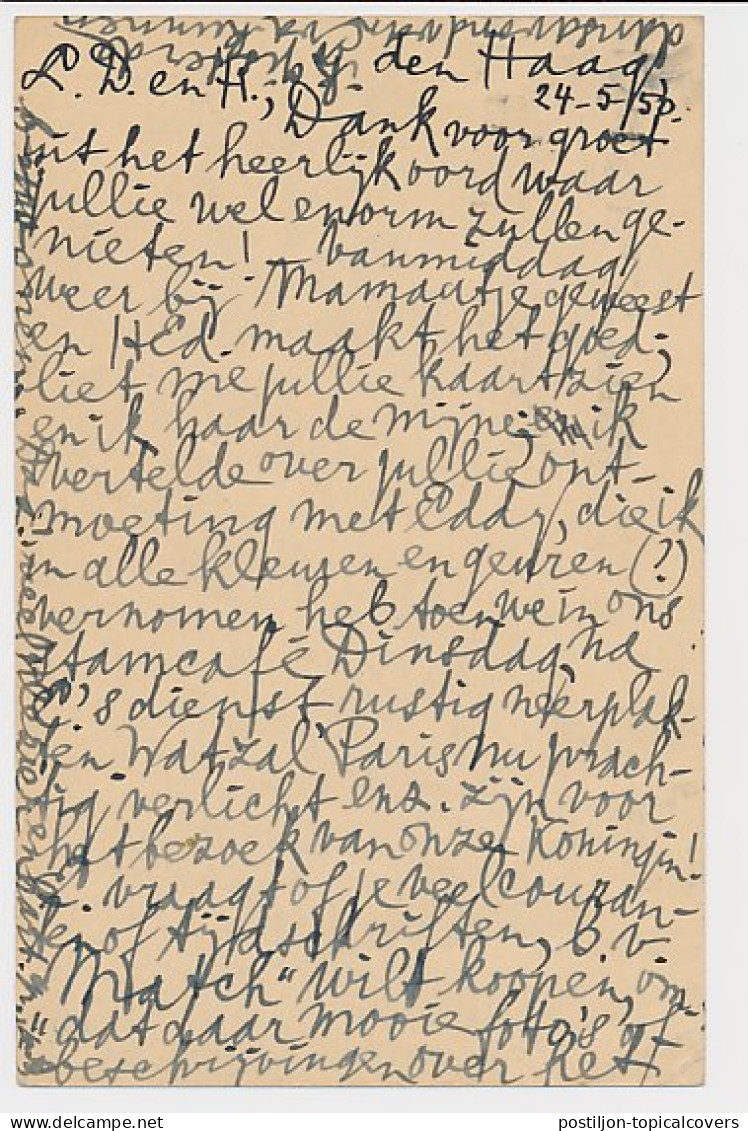 den Haag
L. D. en H.;
24-5-'50.
Dank voor groet
uit het heerlijk oord waar
jullie wel enorm zullen ge-
nieten! Vanmiddag
weer bij Mamaatje geweest
en HEd. maakt het goed;
liet me jullie kaart zien
en ik haar de mijne; ik
vertelde over jullie ont-
moeting met Eddy, die ik
in alle kleuren en geuren (?)
vernomen heb toen we in ons
Stamcafé Dinsdag, na
's dienst rustig neerplak-
ten Wat zal Paris nu prach-
tig verlicht enz. zijn voor
het bezoek van onze Koningin!
vraagt of je veel couran-
ten of tijdschriften, b v
"Match" wilt koopen, om-
dat daar mooie foto's of
beschrijvingen over het
postiljon-topicalcovers